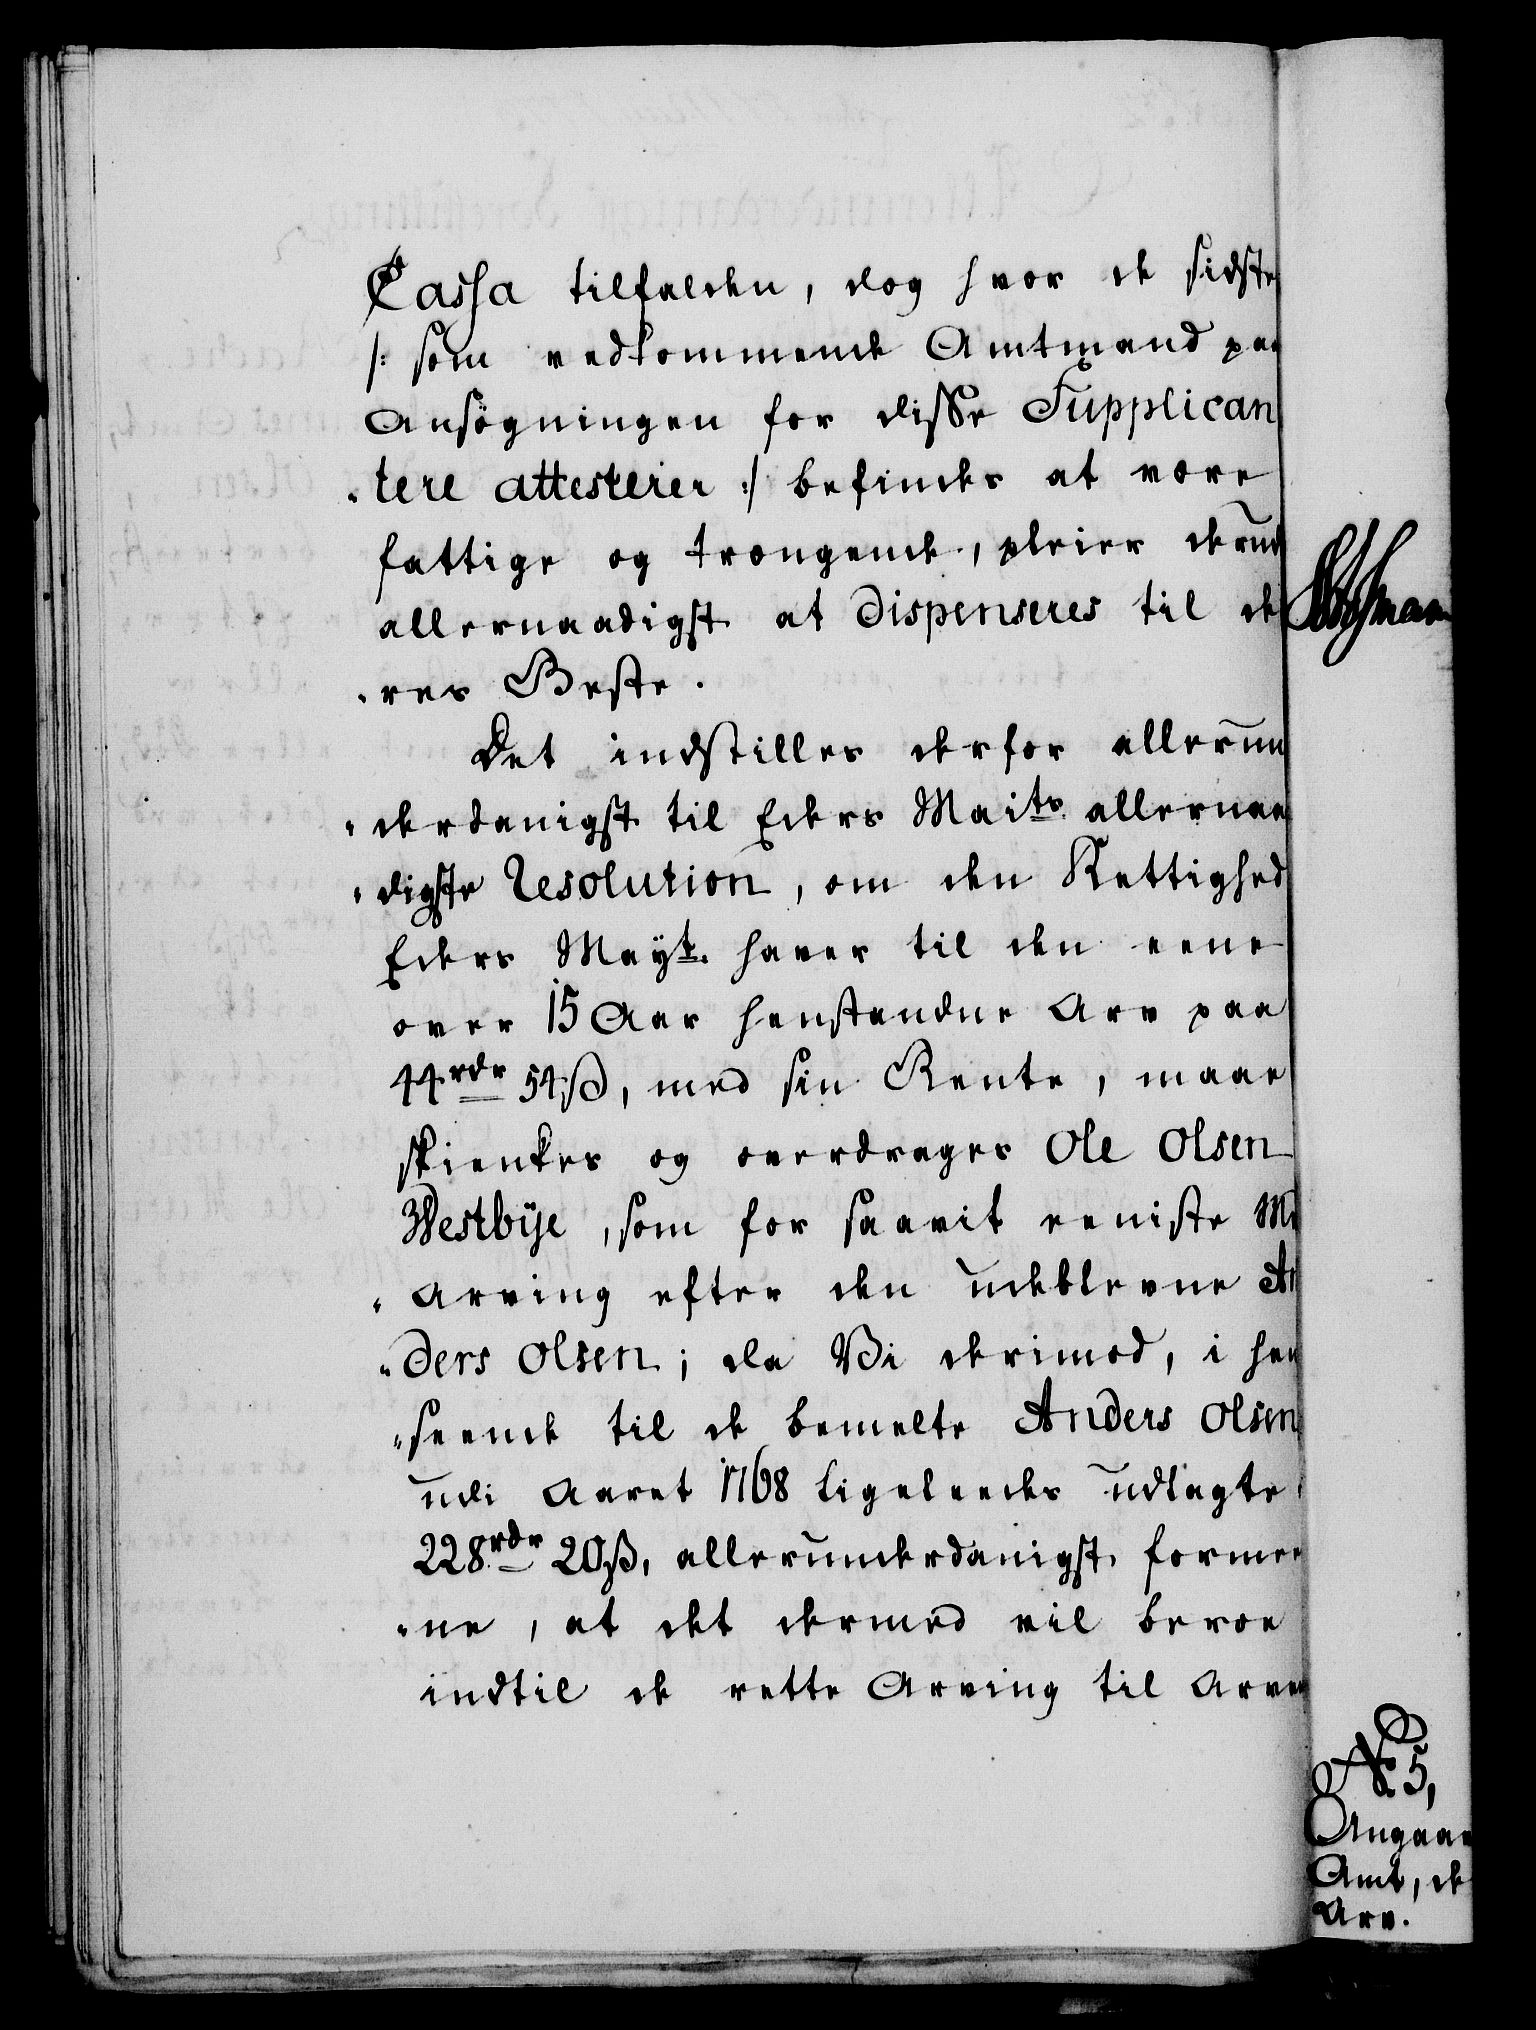 Cassa tilfalden, dog hvor de sidste
/: som vedkommende Amtmand paa
Ansøgningen for disse Supplican
„tere attesterer :/ befindes at være
fattige og trængende, pleier derud
allernaadigst at dispenseres til de
„res Beste.
Det indstilles derfor allerun
„derdanigst til Eders Maits allernaa
„digste Resolution, om den Rettighed
Eders Mayt. haver til den eene
over 15 Aar henstandne Arv paa
44rdr 54ß, med sin Rente, maae
skienkes og overdrages Ole Olsen
Westbÿe, som for saavit eeniste Med
„Arving efter den udeblevne An
„ders Olsen; da Vi derimod, i hen
„seende til de bemelte Anders Olsen
udi Aaret 1768 ligeleedes udlagte
228rdr 20ß, allerunderdanigst formee
„ne, at det dermed vil beroe
indtil de rette Arving til Arven
No 5,
Angaae
Amt, de
Arv.